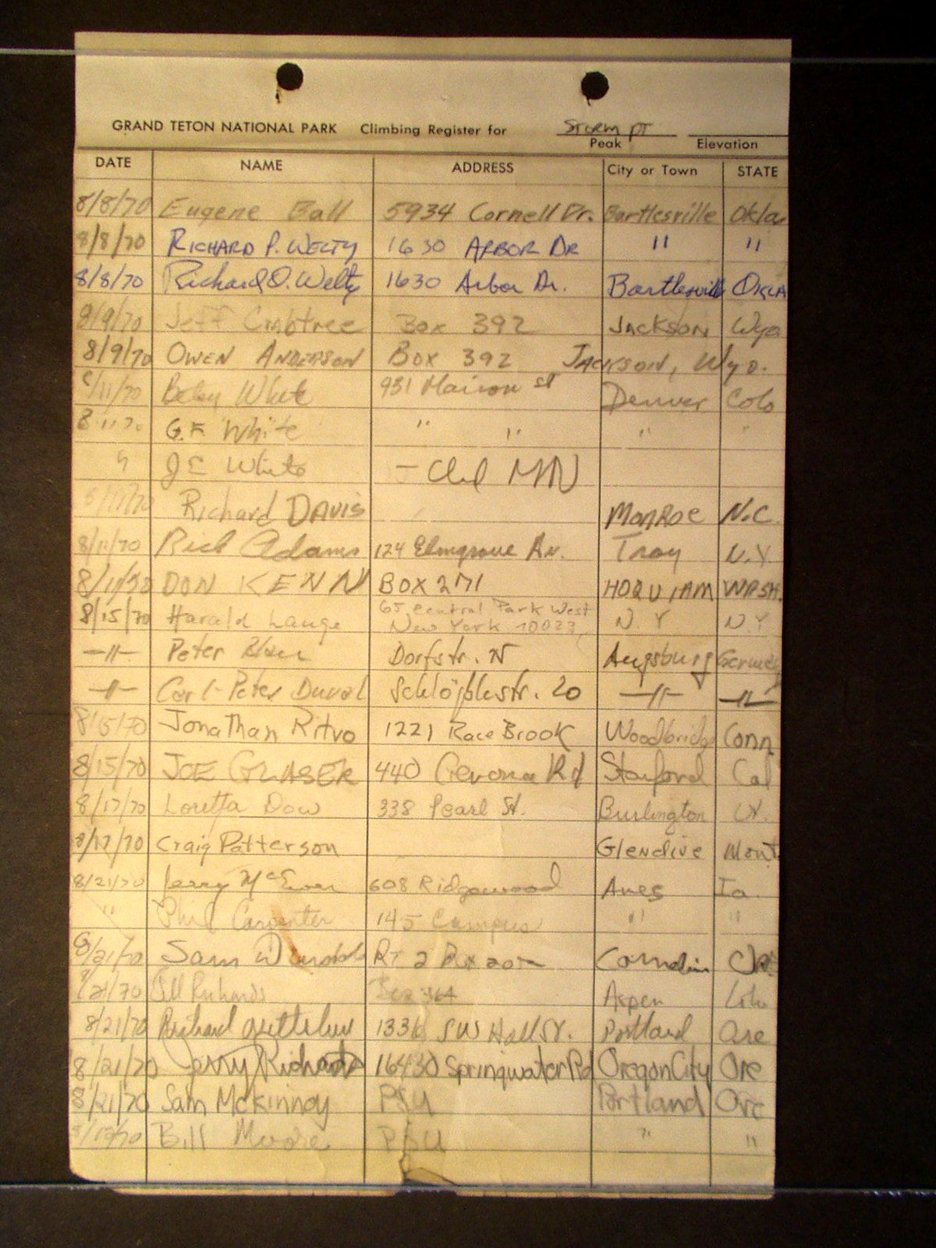 GRAND TETON NATIONAL PARK Climbing Register for Storm Pt
Peak Elevation
DATE NAME ADDRESS City or Town STATE
8/8/70 Eugene Ball 5934 Cornell Dr. Bartlesville Okla
8/8/70 RICHARD P. WELTY 1630 ARBOR DR " "
8/8/70 Richard O. Welty 1630 Arbor Dr. Bartlesville OKLA
8/9/70 Jeff Crabtree Box 392 JACKSON Wyo
8/9/70 OWEN ANDERSON BOX 392 JACKSON, Wyo.
8/11/70 White 931 st Denver Colo
8 11 70 G.F. White " " " "
" J E White –
Richard DAVIS MONROE N.C.
8/11/70 Rick Adams 124 Elmgrove Av. Troy N.Y.
DON KENN BOX 271 HOQUIAM WASH.
8/15/70 Harald Lange 65 Central Park West N.Y N.Y
New York 10023
–"– Peter Dorfstr. Augsburg Germany
–"– Carl-Peter Duval 20 –"– –"–
8/15/70 Jonathan Ritvo 1221 Race Brook Woodbridge Conn
8/15/70 JOE GLASER 440 Gerona Rd Stanford Cal
8/17/70 Loretta Dow 338 Pearl St. Burlington Vt.
8/17/70 Craig Patterson Glendive Mont
8/21/70 Jerry McEwen 608 Ridgewood Ames Ia.
" Phil Carpenter 145 Campus " "
8/21/70 Sam RT 2 Box
8/21/70 Bill Richards Box 364 Aspen Colo
8/21/70 Richard 1336 SW Hall St. Portland Ore
8/21/70 Jerry Richards 16430 Springwater Rd Oregon City Ore
8/21/70 Sam McKinney PSU Portland Ore
Bill Moore PSU " "